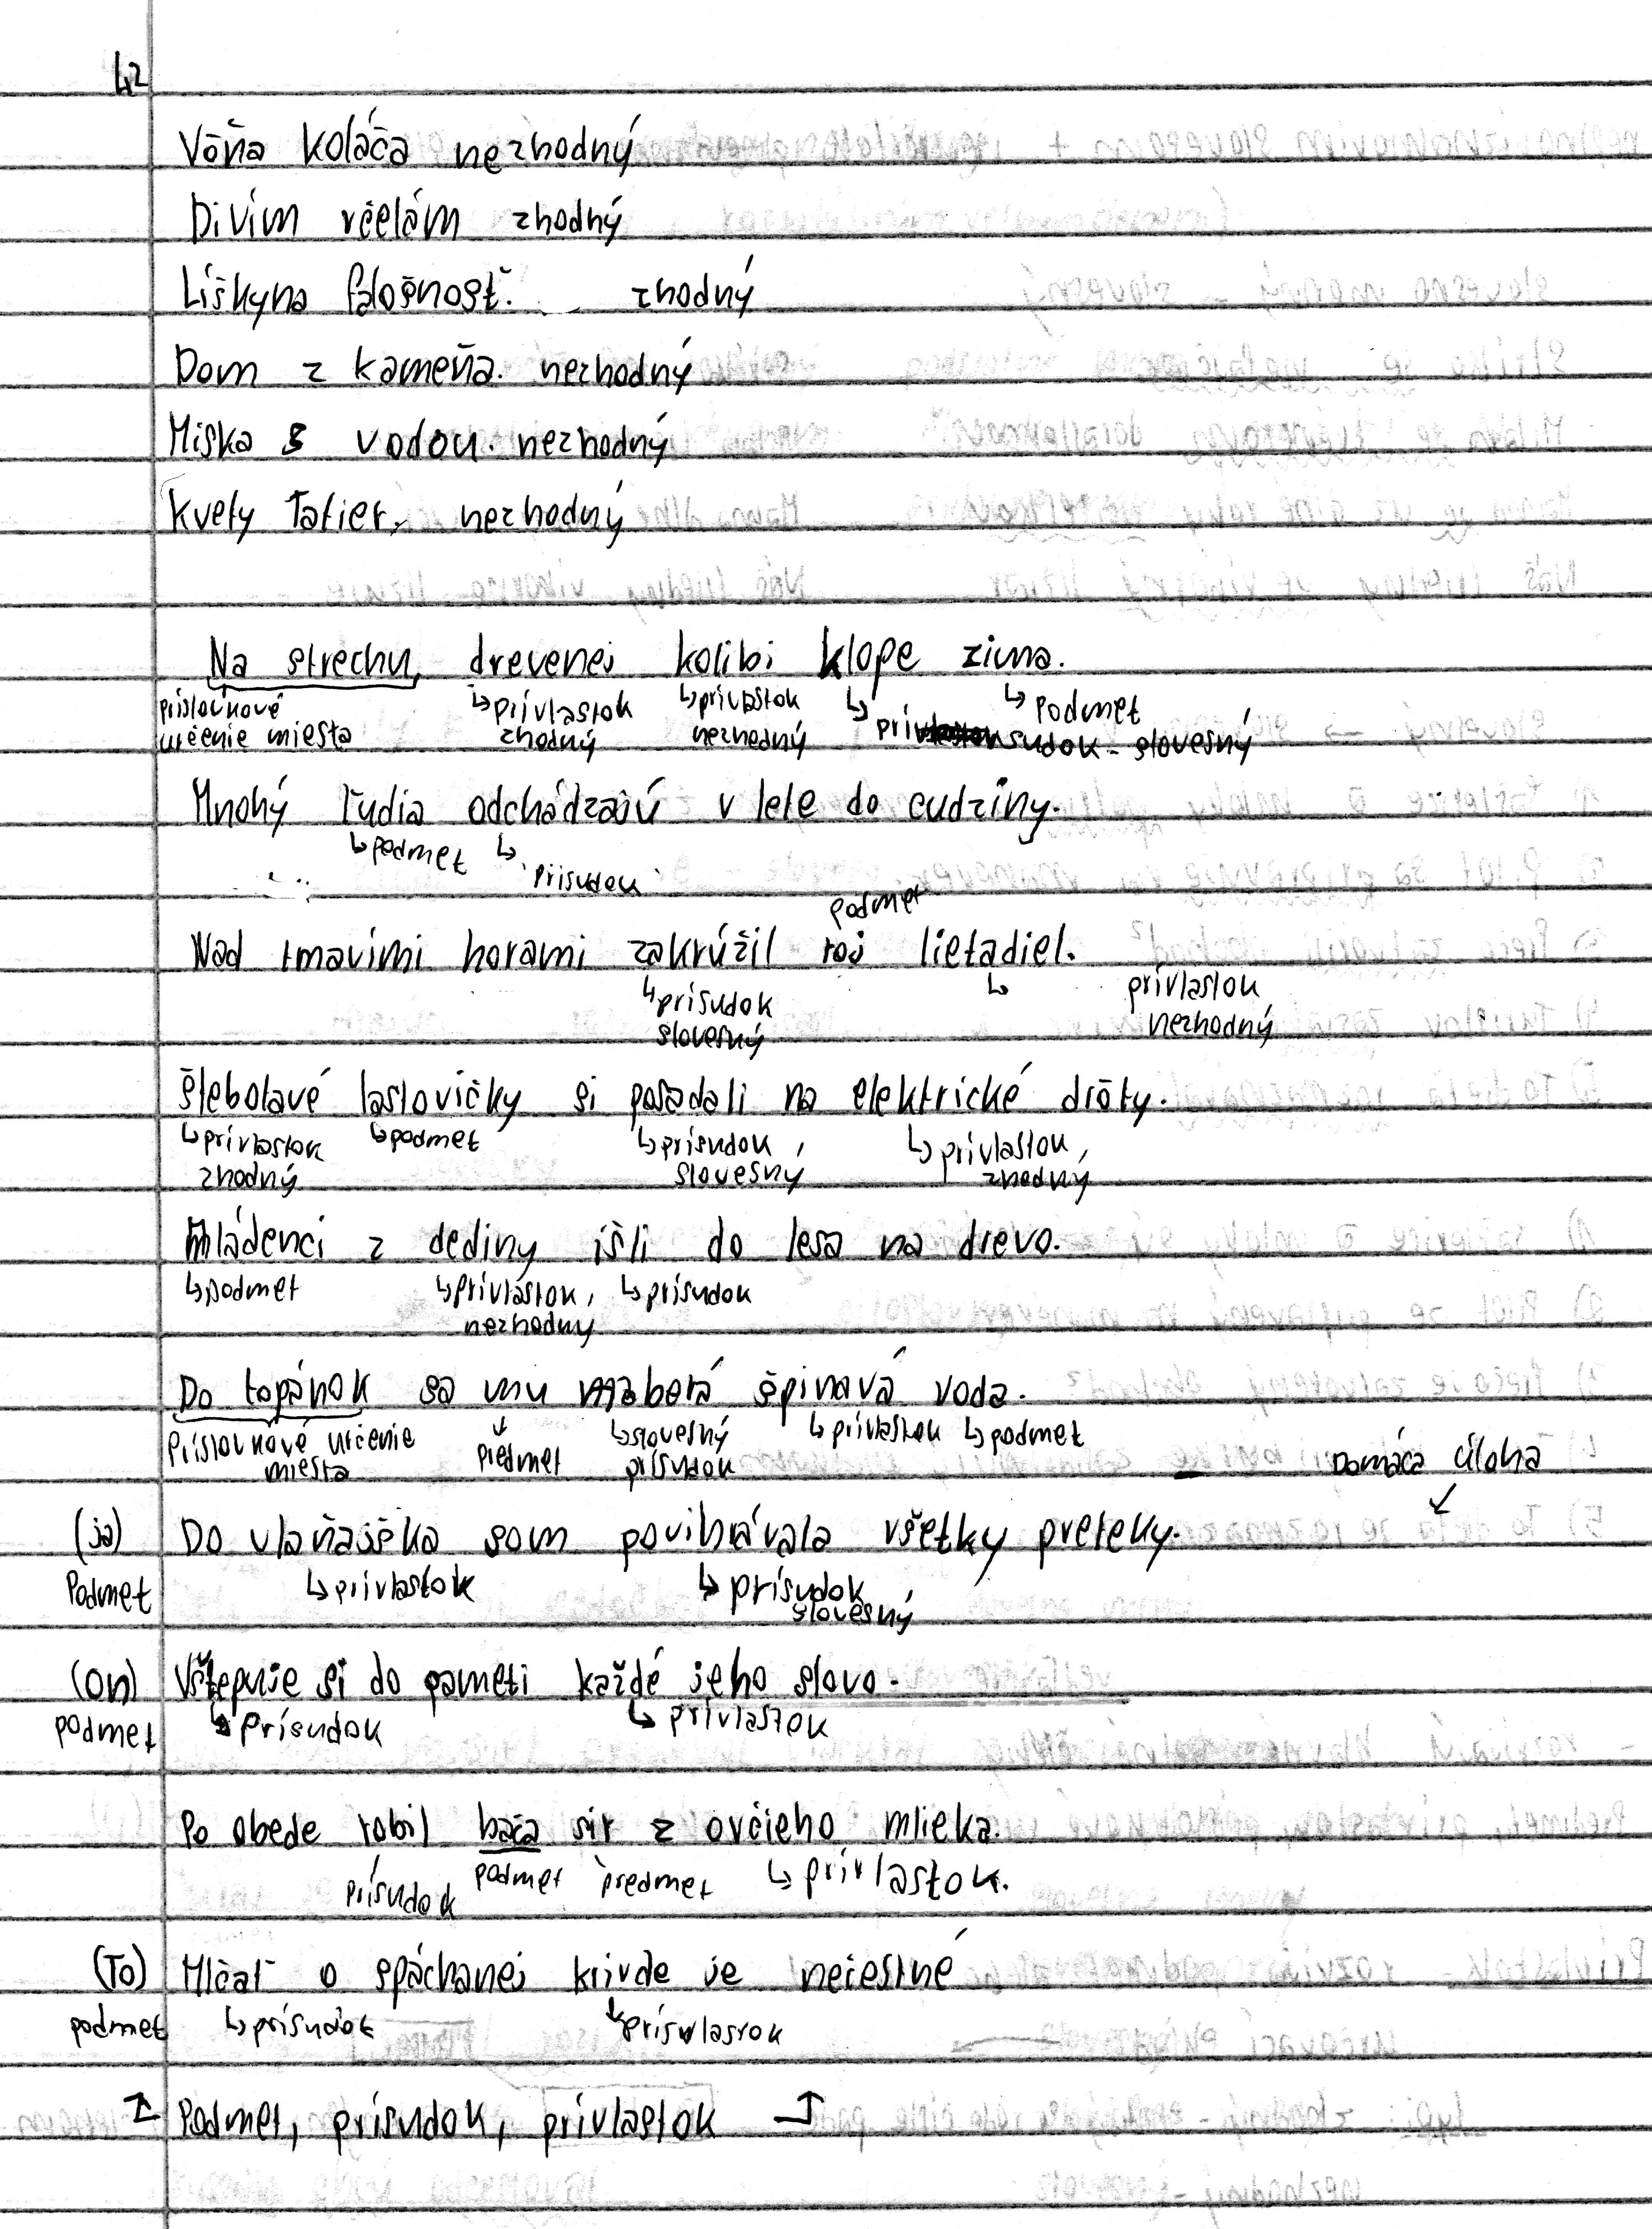 42
Vôňa koláča nezhodný
Divím včelám zhodný
Líškyna falošnosť. zhodný
Dom z kameňa. nezhodný
Miska s vodou. nezhodný
Kvety Tatier, nezhodný
Na strechu drevenej kolibi klope zima.
príslovkové ↳privlastok ↳privlastok ↳ ↳ podmet
určenie miesta zhodný nezhodný prísudok - slovesný
Mnohý ľudia odchádzajú v lete do cudziny.
↳podmet ↳ prísudok
podmet
Nad tmavími horami zakrúžil roj lietadiel.
↳prísudok ↳ prívlastok
slovesný nezhodný
Štebotavé lastovičky si posadali na elektrické drôty.
↳prívlastok ↳podmet ↳prísudok ↳prívlastok,
zhodný slovesný zhodný
Mládenci z dediny išli do lesa na drevo.
↳podmet ↳prívlastok, ↳prísudok
nezhodný
Do topánok sa mu naberá špinavá voda.
Príslovkové určenie ↓ ↳slovesný ↳prívlastok ↳podmet
miesta predmet prísudok
Domáca úloha
↙
(ja) Do vlaňajška som povihrávala všetky preteky.
Podmet ↳prívlastok ↳ prísudok
slovesný
(on) Vštepuje si do pameti každé jeho slovo.
podmet ↳ Prísudok ↳ prívlastok
Po obede robil bača sir z ovčieho mlieka.
prísudok podmet predmet ↳ prívlastok.
(To) Mlčať o spáchanej krivde je nečestné
podmet ↳prísudok
Podmet, prísudok, prívlastok